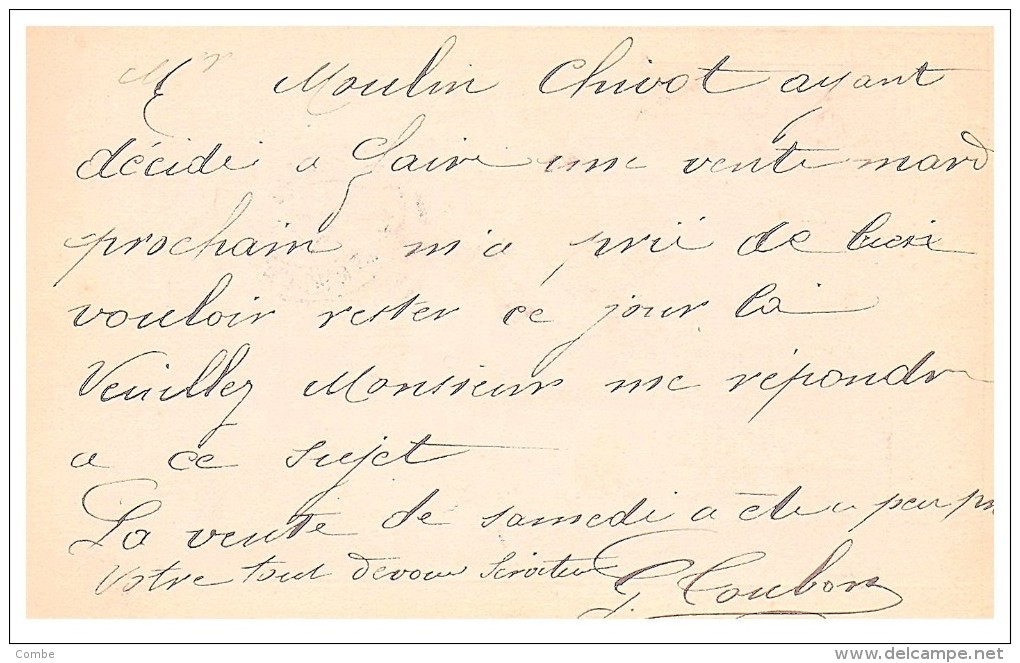 Mr Moulin Chivot ayant
décidé a faire une vente mard
prochain m'a prié de bien
vouloir rester ce jour la
Veuillez Monsieur me répondre
a ce sujet
La vente de samedi a été a peu pr
Votre tout dévoué Serviteur
Combe www.delcampe.net